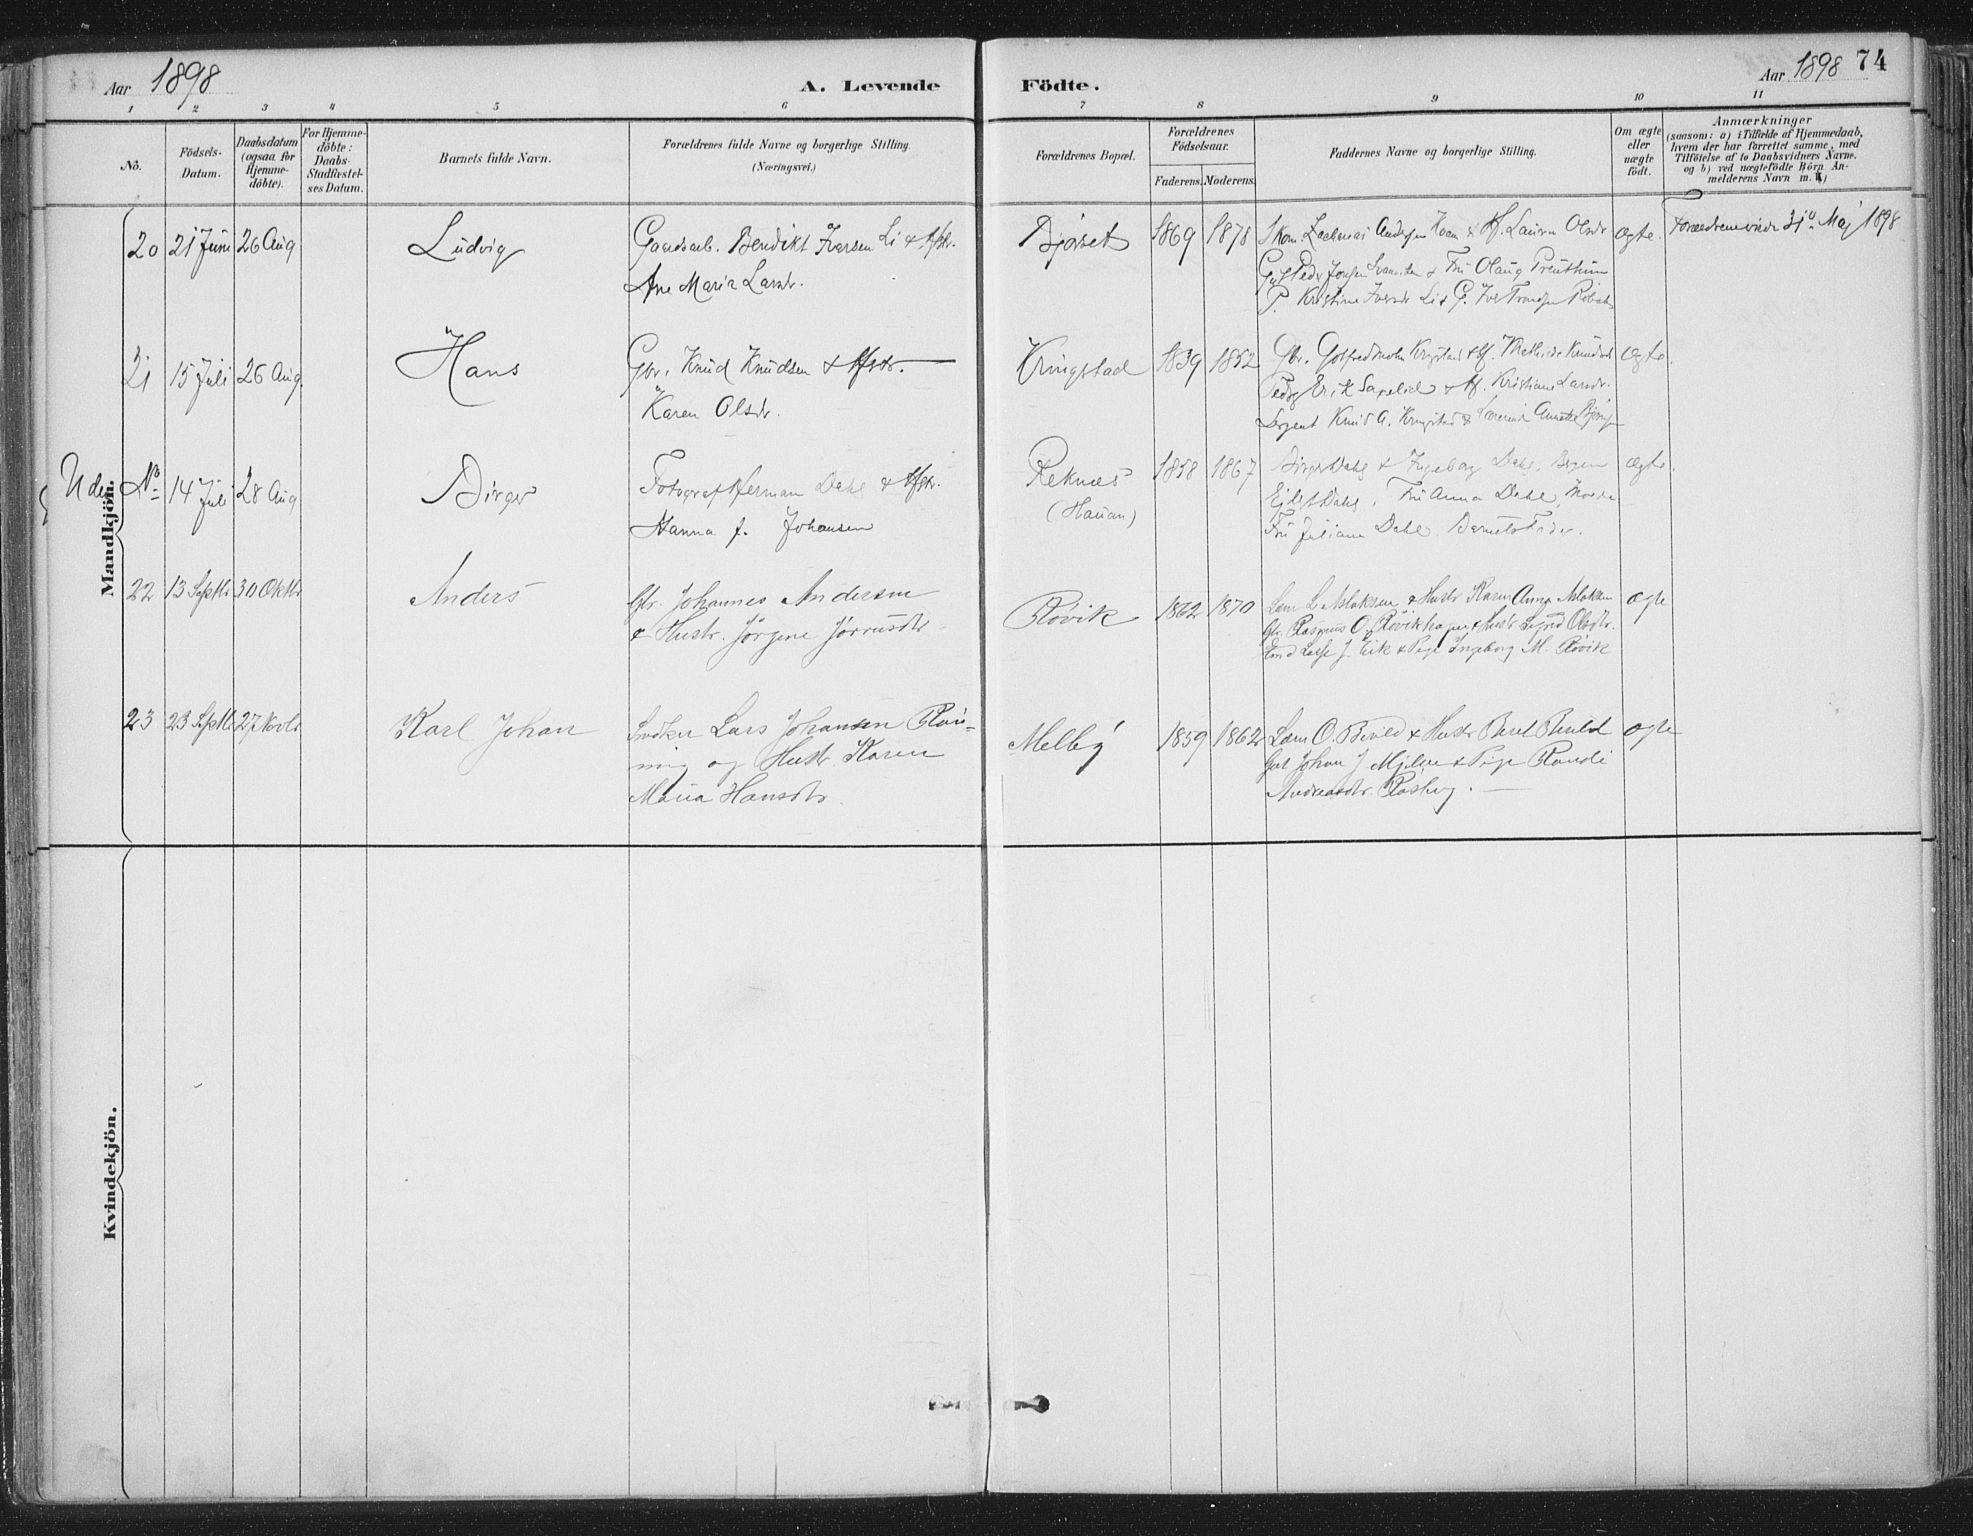 Aar 1898
A. Levende
Födte.
Aar 1898 74
1 2 3 4 5 6 7 8 9 10 11
No.
Födsels-
Datum.
Daabsdatum
(ogsaa for
Hjemme-
döbte).
For Hjemme-
döbte:
Daabs-
Stadfæstel-
ses Datum.
Barnets fulde Navn.
Forældrenes fulde Navne og borgerlige Stilling.
(Næringsvei.)
Forældrenes Bopæl.
Forældrenes
Födselsaar.
Faderens. Moderens.
Faddernes Navne og borgerlige Stilling.
Om ægte
eller
uægte
födt.
Anmærkninger
(saasom: a) i Tilfælde af Hjemmedaab,
hvem der har forrettet samme, med
Tilföielse af to Daabsvidners Navne.
og b) ved uægtefödte Börn An-
melderens Navn m. )
Mandkjön.
20 21 Juni 26 Aug Ludvig
Gaardsarb. Bendikt Iversen Li & Hstr.
Ane Maria Larsdr.
Bjørset 1869 1878
Hf. Laura Olsdr
& Fru Olaug
P. Kristine Iversdr Li & G. Iver
ægte.
31 Maj 1898
21 15 Juli 26 Aug. Hans
Gbr. Knud Knudsen & Hstr.
Karen Olsdr.
Kringstad 1839 1852
Gbr. Gotfred Kringstad & Hf. Mathilde Knudsd
Pedr Erik & Hf. Kristiane Larsdr.
Sergent Knud A. Kringstad &
ægte.
Uden No 14 Juli 28 Aug Birger
Fotograf Herman Dahl & Hstr.
Hanna f. Johansen
Reknæs
(Hauan)
1858 1867
Birger Dahl & Ingeborg Dahl, Bergen
Dahl, Fru Anna Dahl,
Fru Juliane Dahl. Barnets Fader.
ægte.
22 13 Septbr 30 Oktbr Anders
Gbr. Johannes Andersen
& Hustr. Jørgine
Røvik 1862 1870
L. Aslaksen & Hustr Karen Anna Aslaksen
Gbr. Rasmus O. Røvikhagen & Hustr Olsdtr.
J. Eik & Pige Ingeborg M. Røvik
ægte
23 23 Septbr 27 Novbr Karl Johan
Snedker Lars Johansen Røn-
ning og Hustr Karen
Maria Hansdtr.
Melby 1859 1862
O. & Hustr Beret
Johan J Mjelve & Pige Randi
Andreasdtr.
ægte
Kvindekjön.